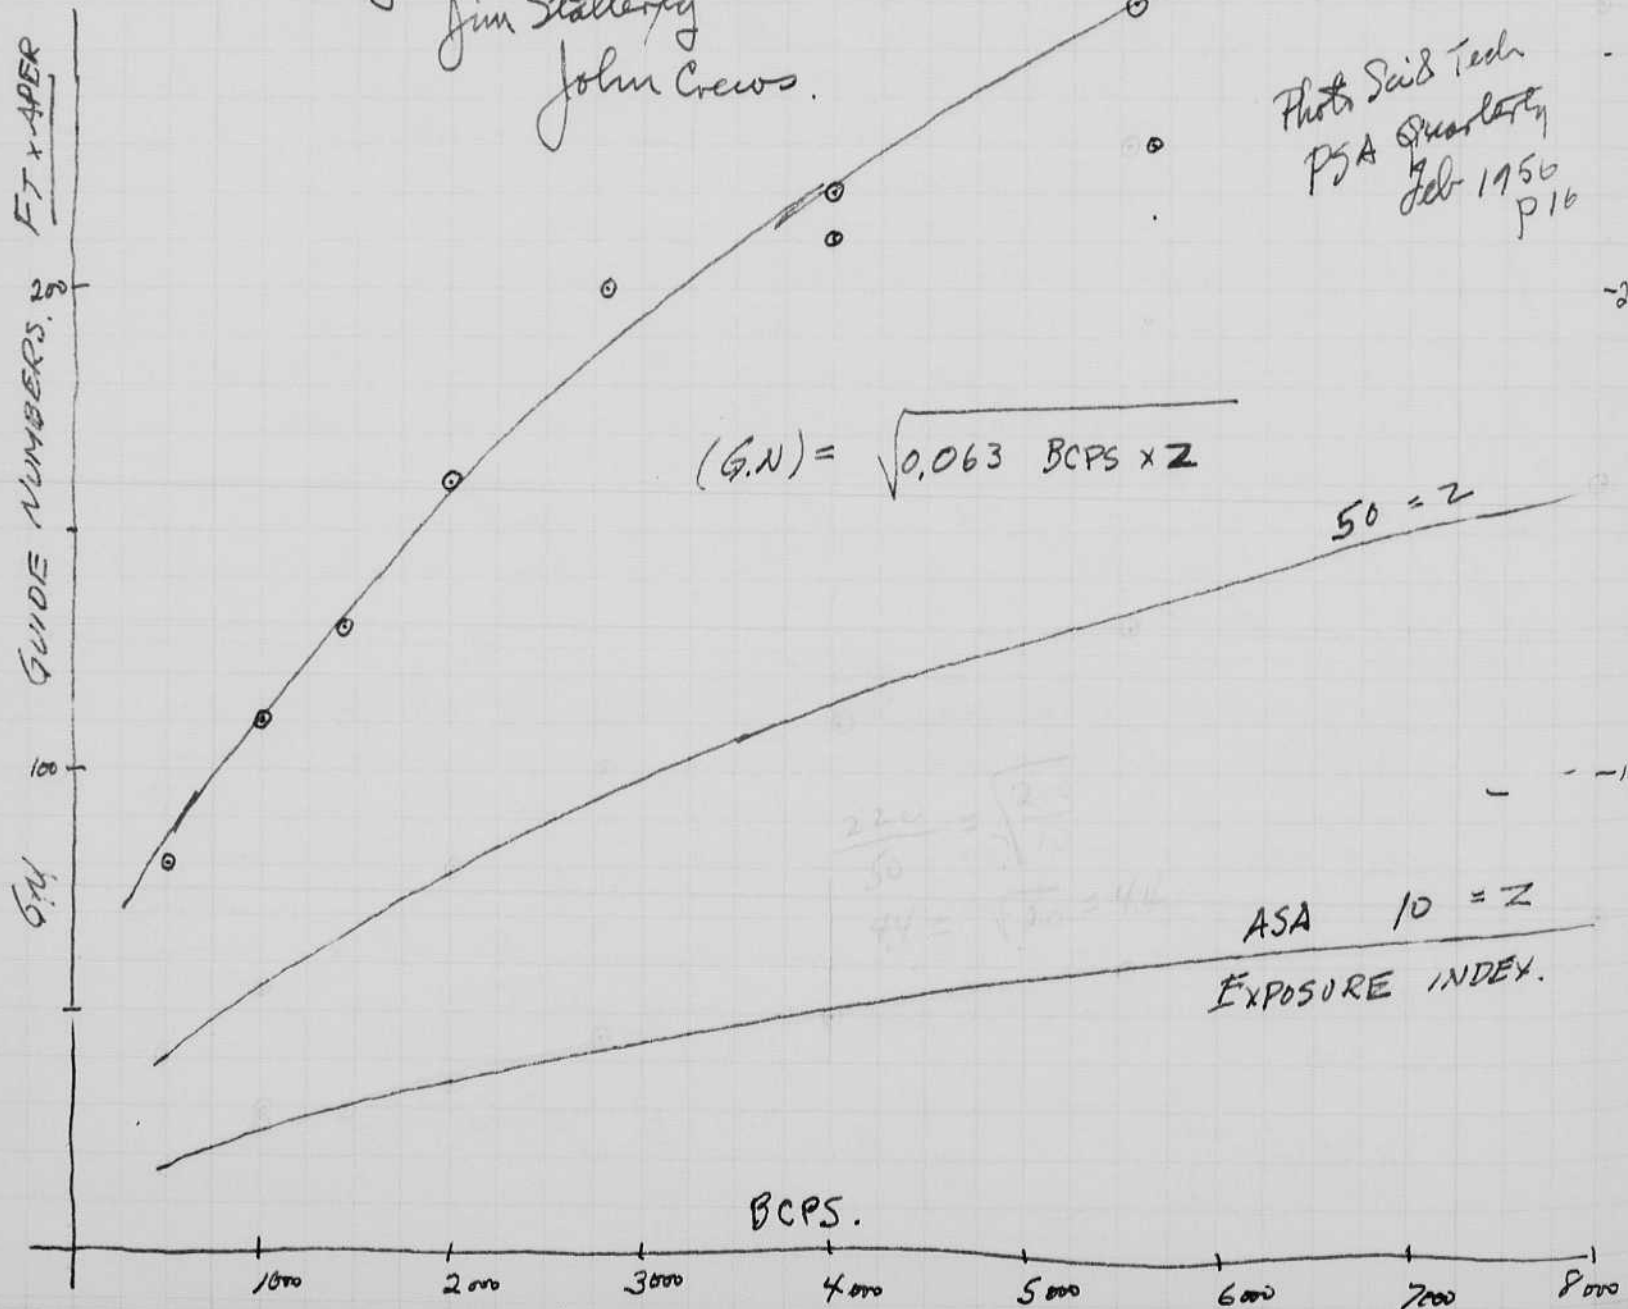 Jim Slattery
John Crews.
Photo Sci & Tech
PSA Quarterly
Feb 1956
p 16
G.N. GUIDE NUMBERS. FT x APER
200
100
-2
-1
(G.N) = √0.063 BCPS x Z
50 = Z
220/50 = √200/10
4.4 = √20 = 4.4
ASA 10 = Z
EXPOSURE INDEX.
BCPS.
1000 2000 3000 4000 5000 6000 7000 8000